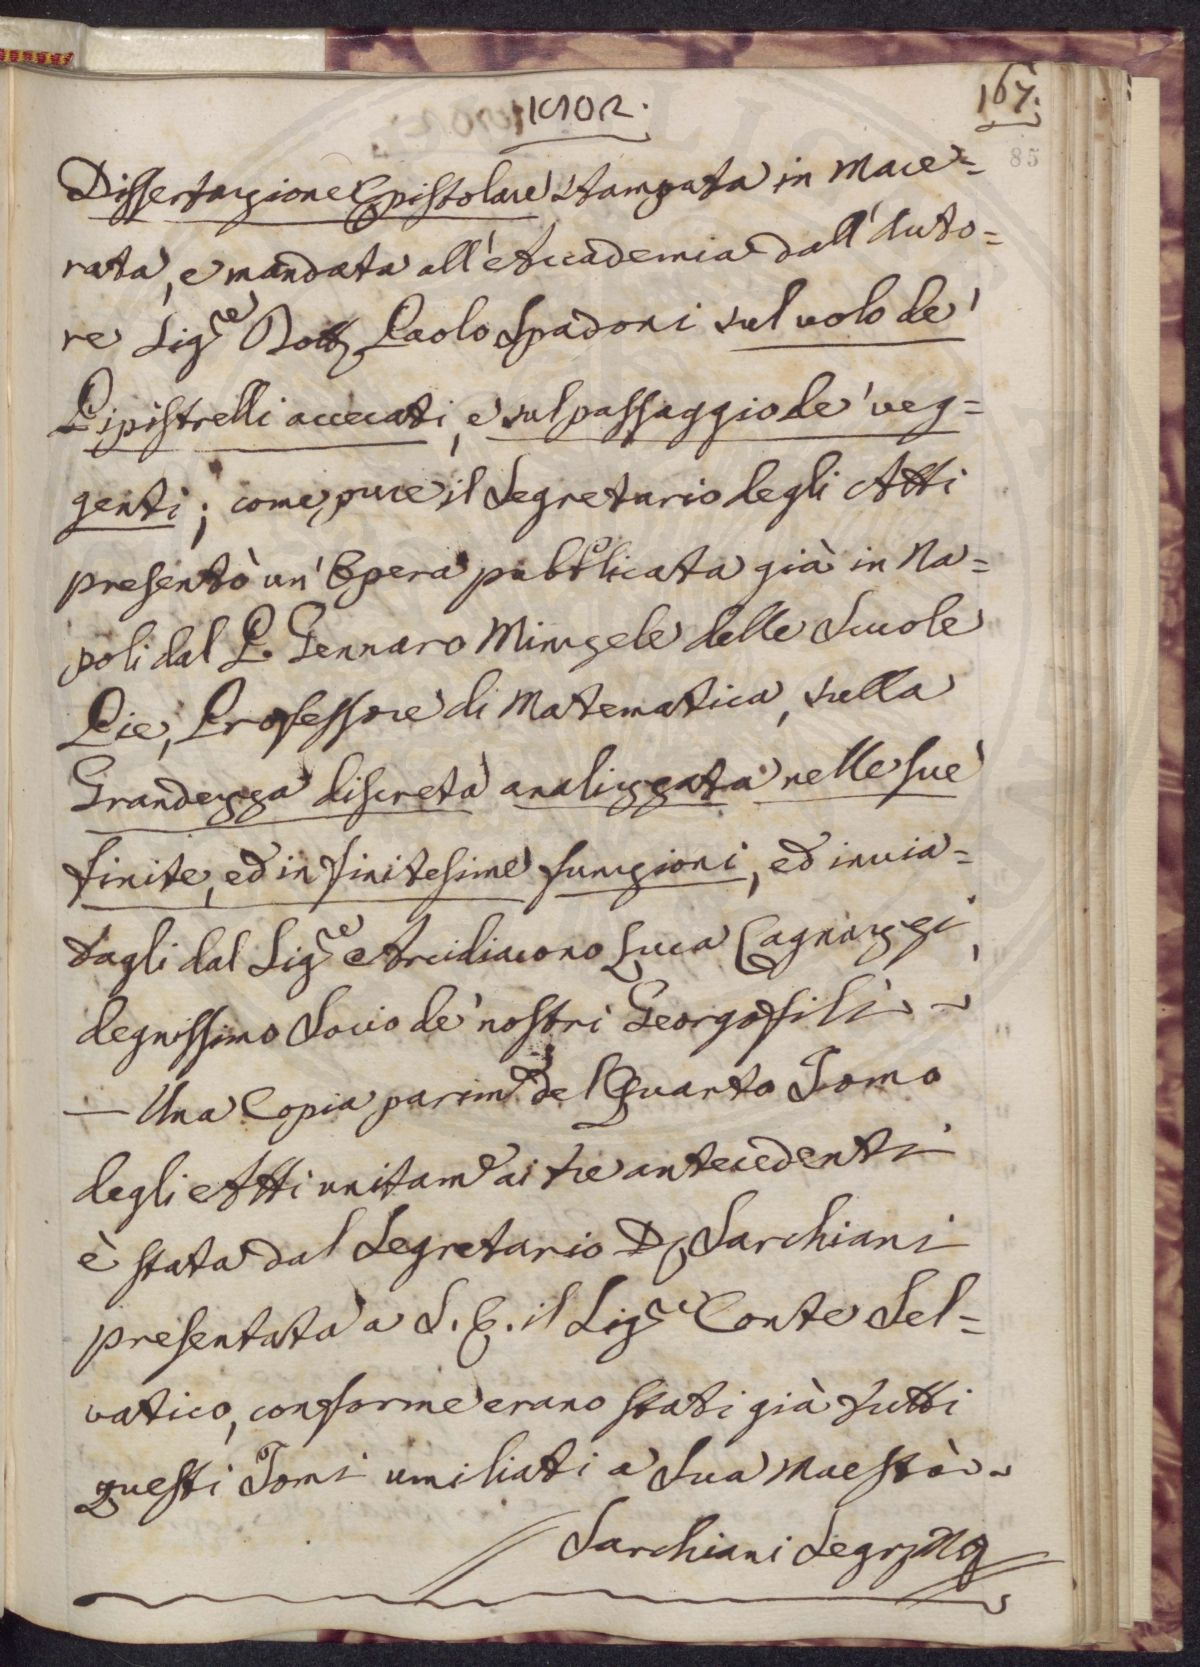 1802.
167.
85
Dissertazione Epistolare stampata in Mace=
rata, e mandata all'Accademia dall'Auto=
re Sig.re Dott. Paolo Spadoni sul volo de'
Pipistrelli accecati, e sul passaggio de' veg=
genti; come pure il Segretario degli Atti
presentò un'Opera pubblicata già in Na=
poli dal P. Gennaro Minzele delle Scuole
Pie, Professore di Matematica, sulla
Grandezza discreta analizzata nelle sue
finite, ed infinitesime funzioni, ed invia=
tagli dal Sig.re Arcidiacono Luca Cagnazzi,
degnissimo Socio de' nostri Georgofili
— Una Copia parim.e del Quarto Tomo
degli Atti unitam.e ai tre antecedenti
è stata dal Segretario D. Sarchiani
presentata a S. E. il Sig.re Conte Sel=
vatico, conforme erano stati già tutti
questi Tomi umiliati a Sua Maestà
Sarchiani Segr.